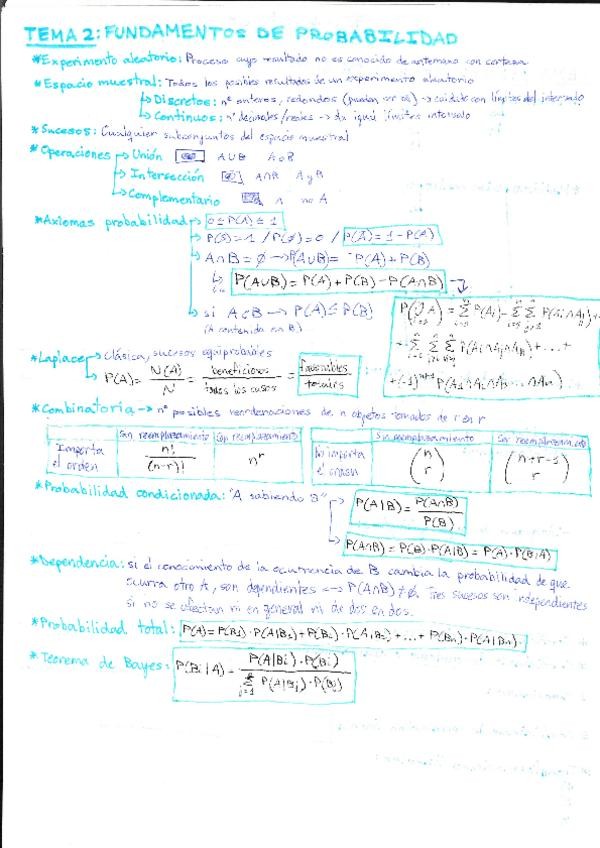 TEMA 2: FUNDAMENTOS DE PROBABILIDAD
*Experimento aleatorio: Proceso cuyo resultado no es conocido de antemano con certeza
*Espacio muestral: Todos los posibles resultados de un experimento aleatorio
↳ Discretos: nº enteros, redondos (pueden ser ∞) → cuidado con límites del intervalo
↳ Continuos: nº decimales/reales → da igual límites intervalo
*Sucesos: Cualquier subconjuntos del espacio muestral
*Operaciones → Unión A∪B A o B
↳ Intersección A∩B A y B
↳ Complementario no A
*Axiomas probabilidad → 0 ≤ P(A) ≤ 1
↳ P(S)=1 / P(∅)=0 / P(Ā)=1-P(A)
↳ A∩B=∅ → P(A∪B)= P(A)+P(B)
↳ P(A∪B)=P(A)+P(B)-P(A∩B)
↳ si A⊂B → P(A)≤P(B)
(A contenida en B)
*Laplace → Clásica, sucesos equiprobables
↳ P(A)= N(A)/N = beneficiosos/todos los casos = favorables/totales
*Combinatoria → nº posibles reordenaciones de n objetos tomados de r en r
Sin reemplazamiento Con reemplazamiento
Importa el orden n!/(n-r)! n^r
Sin reemplazamiento Con reemplazamiento
No importa el orden (n r) (n+r-1 r)
*Probabilidad condicionada: "A sabiendo B" → P(A|B)= P(A∩B)/P(B)
↳ P(A∩B)=P(B)·P(A|B)=P(A)·P(B|A)
*Dependencia: si el conocimiento de la ocurrencia de B cambia la probabilidad de que
ocurra otro A, son dependientes ↔ P(A∩B)≠∅. Tres sucesos son independientes
si no se afectan ni en general ni de dos en dos.
*Probabilidad total: P(A)=P(B₁)·P(A|B₁)+P(B₂)·P(A|B₂)+...+P(Bn)·P(A|Bn).
*Teorema de Bayes: P(Bi|A)= P(A|Bi)·P(Bi) / Σ P(A|Bj)·P(Bj)